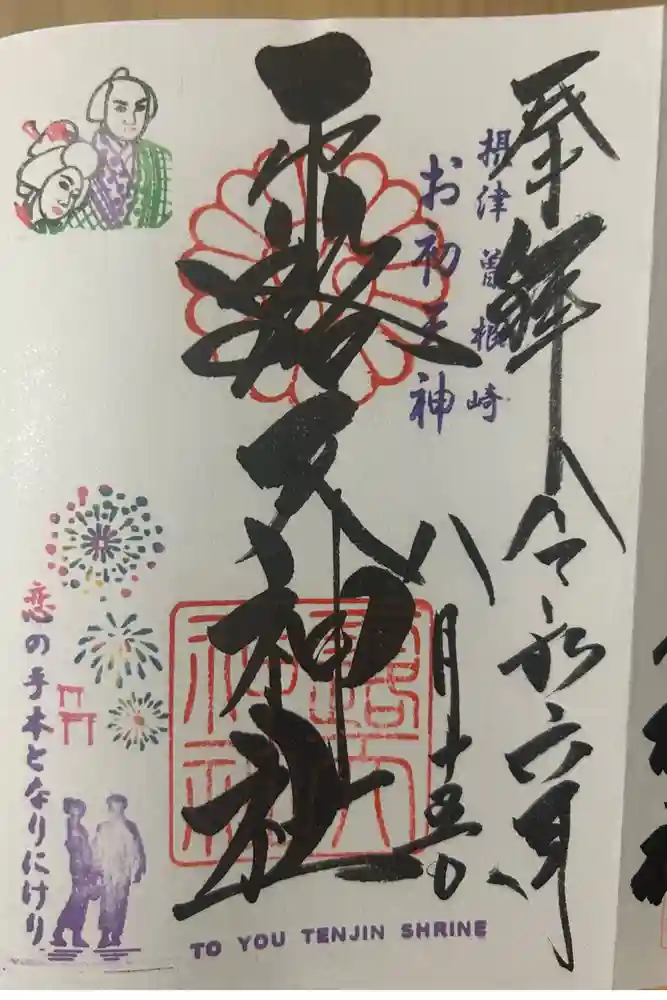 奉拝 令和六年
八月十五日
摂津 曽根崎
お初天神
露天神社
露天神社
恋の手本となりにけり
TO YOU TENJIN SHRINE